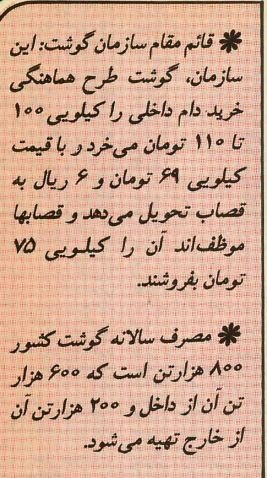 * قائم مقام سازمان گوشت: این
سازمان، گوشت طرح هماهنگی
خرید دام داخلی را کیلویی ۱۰۰
تا ۱۱۰ تومان می‌خرد و با قیمت
کیلویی ۶۹ تومان و ۶ ریال به
قصاب تحویل می‌دهد و قصابها
موظف‌اند آن را کیلویی ۷۵
تومان بفروشند.
* مصرف سالانه گوشت کشور
۸۰۰ هزارتن است که ۶۰۰ هزار
تن آن از داخل و ۲۰۰ هزارتن آن
از خارج تهیه می‌شود.